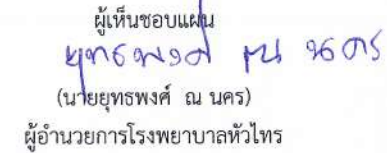 ผู้เห็นชอบแผน
ยุทธพงศ์ ณ นคร
(นายยุทธพงศ์ ณ นคร)
ผู้อำนวยการโรงพยาบาลหัวไทร